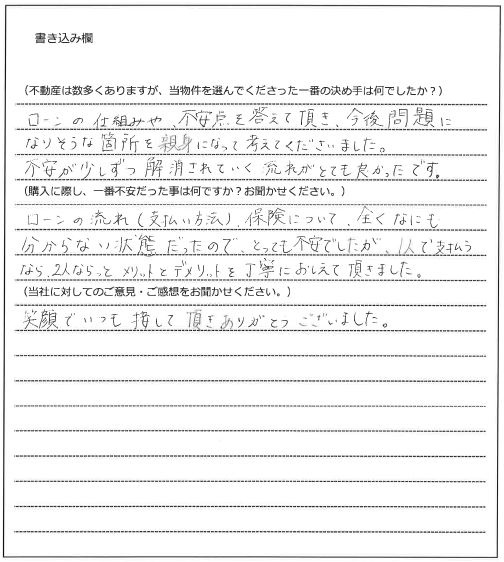 書き込み欄
(不動産は数多くありますが、当物件を選んでくださった一番の決め手は何でしたか?)
ローンの仕組みや、不安点を答えて頂き、今後問題に
なりそうな箇所を親身になって考えてくださいました。
不安が少しずつ解消されていく流れがとても良かったです。
(購入に際し、一番不安だった事は何ですか?お聞かせください。)
ローンの流れ(支払い方法)、保険について、全くなにも
分からない状態だったので、とっても不安でしたが、1人で支払う
なら、2人ならっとメリットとデメリットを丁寧におしえて頂きました。
(当社に対してのご意見・ご感想をお聞かせください。)
笑顔でいつも接して頂きありがとうございました。